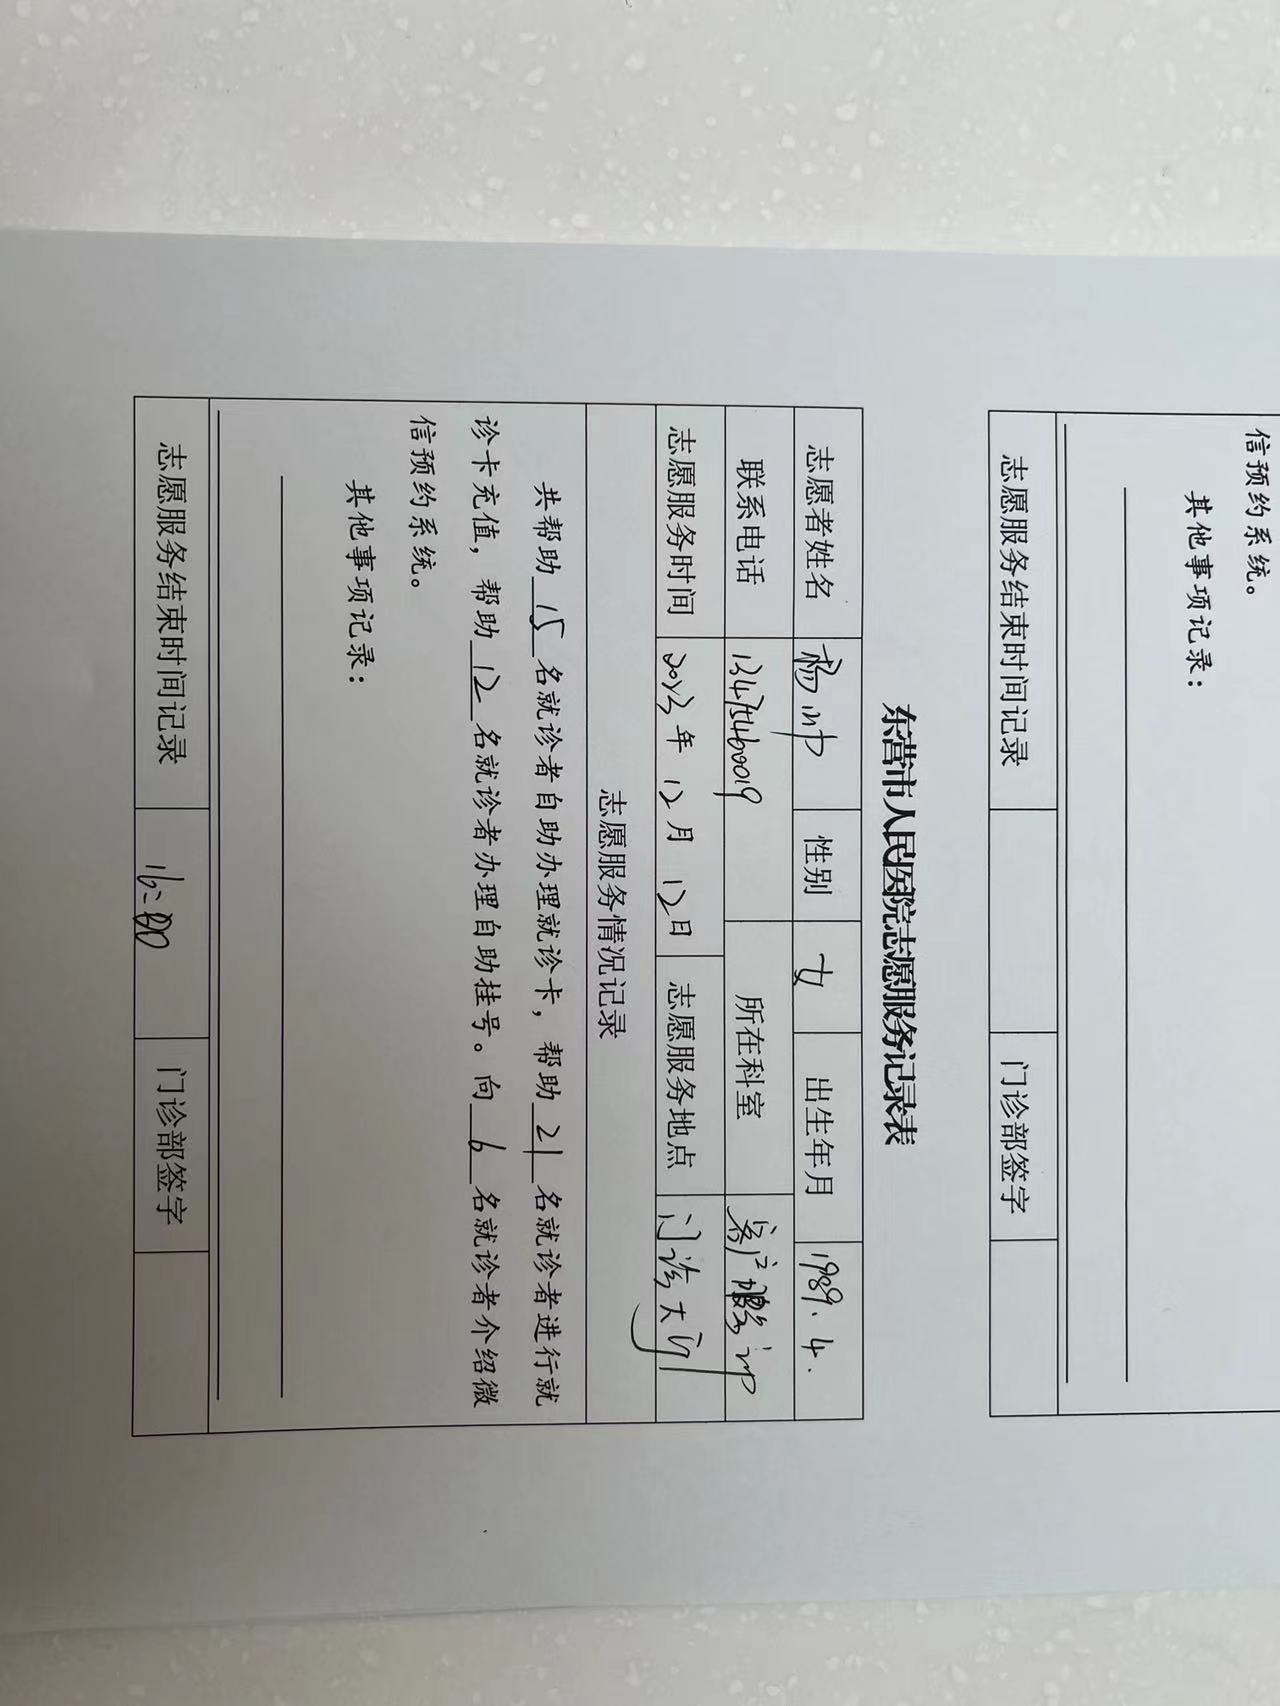 信预约系统。
其他事项记录：
志愿服务结束时间记录 门诊部签字
东营市人民医院志愿服务记录表
志愿者姓名 杨 性别 女 出生年月 1989.4.
联系电话 13475460019 所在科室 客户服务
志愿服务时间 2023年12月12日 志愿服务地点 门诊大厅
志愿服务情况记录
共帮助15名就诊者自助办理就诊卡，帮助21名就诊者进行就
诊卡充值，帮助12名就诊者办理自助挂号。向6名就诊者介绍微
信预约系统。
其他事项记录：
志愿服务结束时间记录 16:00 门诊部签字